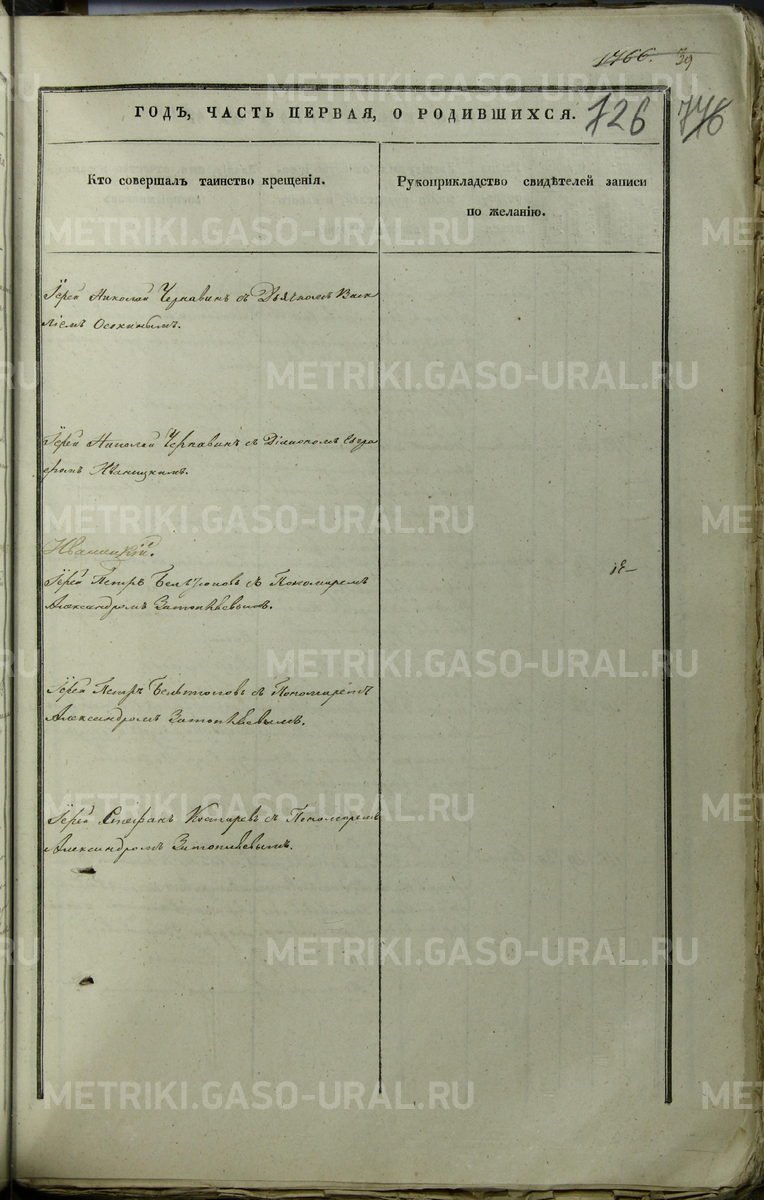 1766. 39
ГОДЪ, ЧАСТЬ ПЕРВАЯ, О РОДИВШИХСЯ. 726 776
Кто совершалъ таинство крещенія.
Рукоприкладство свидѣтелей записи
по желанію.
Іерей Николай Чернавинъ съ Дьячкомъ Васи
ліемъ Осокинымъ.
Іерей Николай Чернавинъ съ Діакономъ
Иваницкимъ.
Иваницкій.
Іерей Петръ съ Пономаремъ
Александромъ Затопляевымъ.
Іерей Петръ съ Пономаремъ
Александромъ Затопляевымъ.
Іерей Стефанъ Костаревъ съ Пономаремъ
Александромъ Затопляевымъ.
METRIKI.GASO-URAL.RU